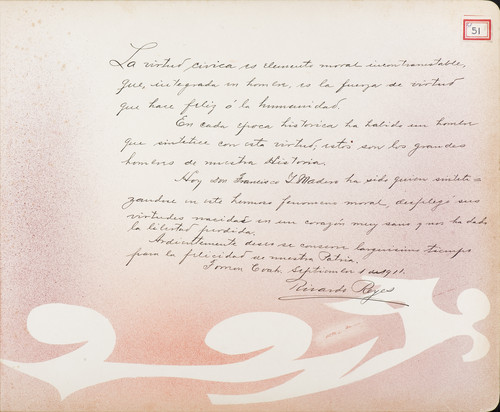 51
La virtud cívica es elemento moral incontrastable,
que, integrada en hombre, es la fuerza de virtud
que hace feliz á la humanidad.
En cada época historica ha habido un hombre
que sintetice con esta virtud, estos son los grandes
hombres de nuestra Historia.
Hoy Don Francisco I. Madero ha sido quien sinteti-
zandose en este hermoso fenomeno moral, desplegó sus
virtudes nacidas en un corazón muy sano y nos ha dado
la libertad perdida.
Ardientemente deseo se conserve larguisimo tiempo
para la felicidad de nuestra Patria.
Torreon Coah. Septiembre 1 de 1911.
Ricardo Reyes